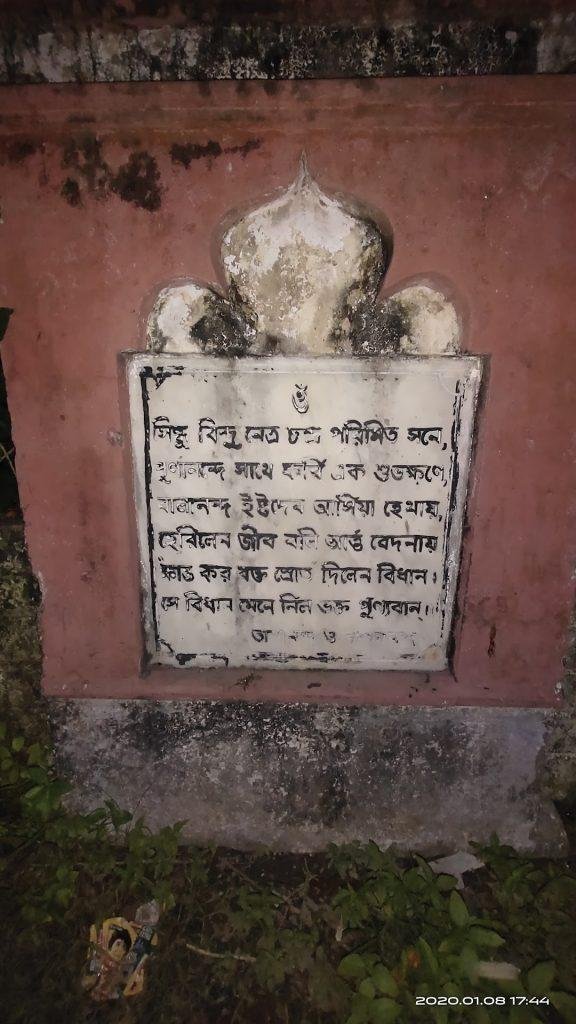 ওঁ
সিন্ধু বিন্দু নেত্র চন্দ্র পরিমিত সনে,
পুণানন্দে সাথে করি এক শুভক্ষণে,
ইষ্টদেব আসিয়া হেথায়,
হেরিলেন জীব বলি আর্ত্ত বেদনায়
ক্ষান্ত কর রক্ত স্রোত দিলেন বিধান।
সে বিধান মেনে নিল ভক্ত পুণ্যবান্।।
ও
2020.01.08 17:44